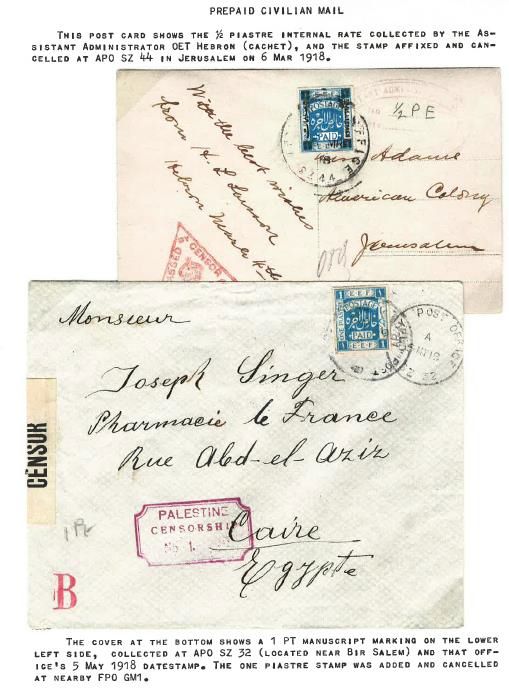 PREPAID CIVILIAN MAIL
THIS POST CARD SHOWS THE ½ PIASTRE INTERNAL RATE COLLECTED BY THE AS-
SISTANT ADMINISTRATOR OET HEBRON (CACHET), AND THE STAMP AFFIXED AND CAN-
CELLED AT APO SZ 44 IN JERUSALEM ON 6 MAR 1918.
With the best wishes
from H. L.
Hebron March
½ P E
POSTAGE
خالص الاجرة
PAID
OFFICE
SZ 44
Adams
American Colony
Jerusalem
PASSED BY CENSOR
Monsieur
Joseph Singer
Pharmacie le France
Rue Abd-el-Aziz
Caire
Egypte
1 E.E.F 1
POSTAGE
خالص الاجرة
PAID
1 E E F 1
POST OFFICE
A
18
32
CENSUR
PALESTINE
CENSORSHIP
No 1.
1 Pt
B
THE COVER AT THE BOTTOM SHOWS A 1 PT MANUSCRIPT MARKING ON THE LOWER
LEFT SIDE, COLLECTED AT APO SZ 32 (LOCATED NEAR BIR SALEM) AND THAT OFF-
ICE'S 5 MAY 1918 DATESTAMP. THE ONE PIASTRE STAMP WAS ADDED AND CANCELLED
AT NEARBY FPO GM1.